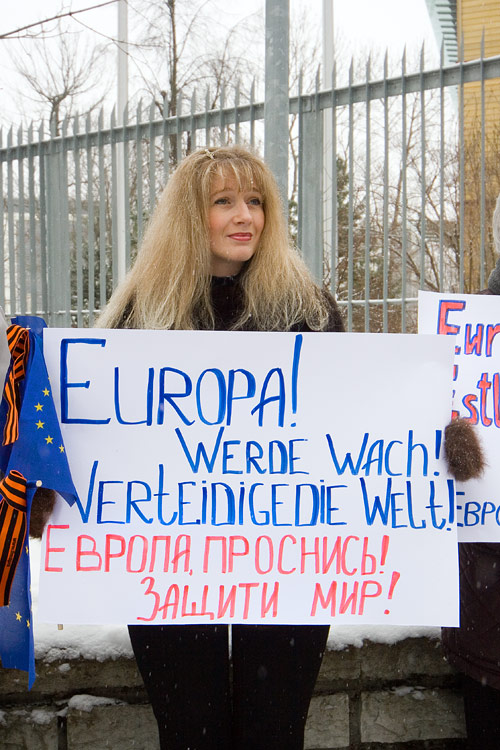 EUROPA!
WERDE WACH!
VERTEIDIGE DIE WELT!
ЕВРОПА, ПРОСНИСЬ!
ЗАЩИТИ МИР!